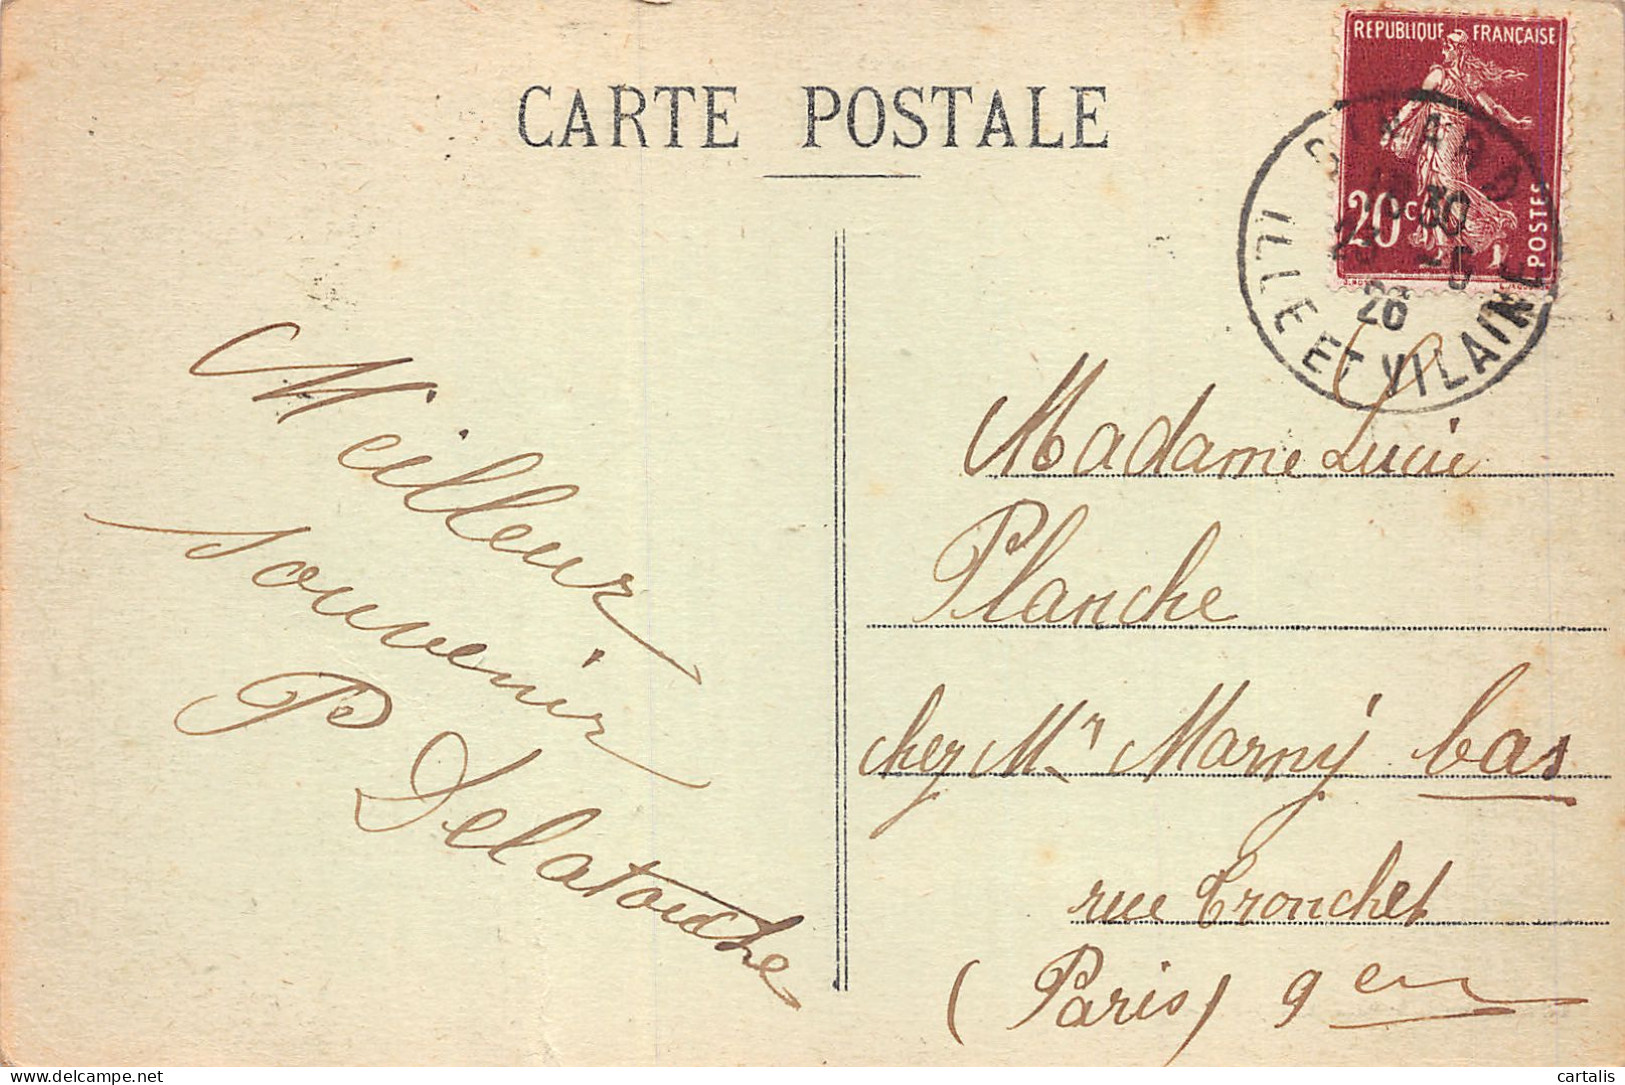 CARTE POSTALE
REPUBLIQUE FRANÇAISE
20c
POSTES
30
26
ILLE ET VILAINE
Meilleur
souvenir
P Delatouche
Madame Lucie
Planche
chez Mr Marny bas
rue Tronchet
(Paris) 9em
cartalis